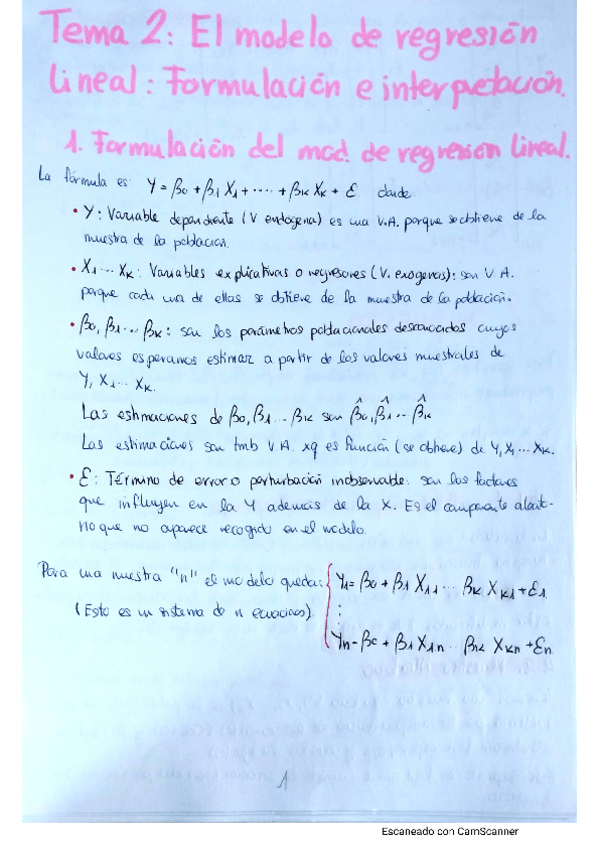 Tema 2: El modelo de regresión
lineal: Formulación e interpretación.
1. Formulación del mod. de regresión lineal.
La fórmula es: Y = β0 + β1 X1 + ····· + βk Xk + ε donde
• Y: Variable dependiente (V endógena) es una V.A. porque se obtiene de la
muestra de la población.
• X1 ··· Xk: Variables explicativas o regresores (V. exógenas): son V.A.
porque cada una de ellas se obtiene de la muestra de la población.
• β0, β1 ··· βk: son los parámetros poblacionales desconocidos cuyos
valores esperamos estimar a partir de los valores muestrales de
Y, X1 ··· Xk.
Las estimaciones de β0, β1 ... βk son β̂0, β̂1 ... β̂k
Las estimaciones son tmb V.A. xq es función (se obtiene) de Y, X1 ··· Xk.
• ε: Término de error o perturbación inobservable: son los factores
que influyen en la Y además de la X. Es el componente aleato-
rio que no aparece recogido en el modelo.
Para una muestra "n" el modelo queda: Y1 = β0 + β1 X11 ··· βk Xk1 + ε1
(Esto es un sistema de n ecuaciones) :
Yn = β0 + β1 X1n ·· βk Xkn + εn
1
Escaneado con CamScanner